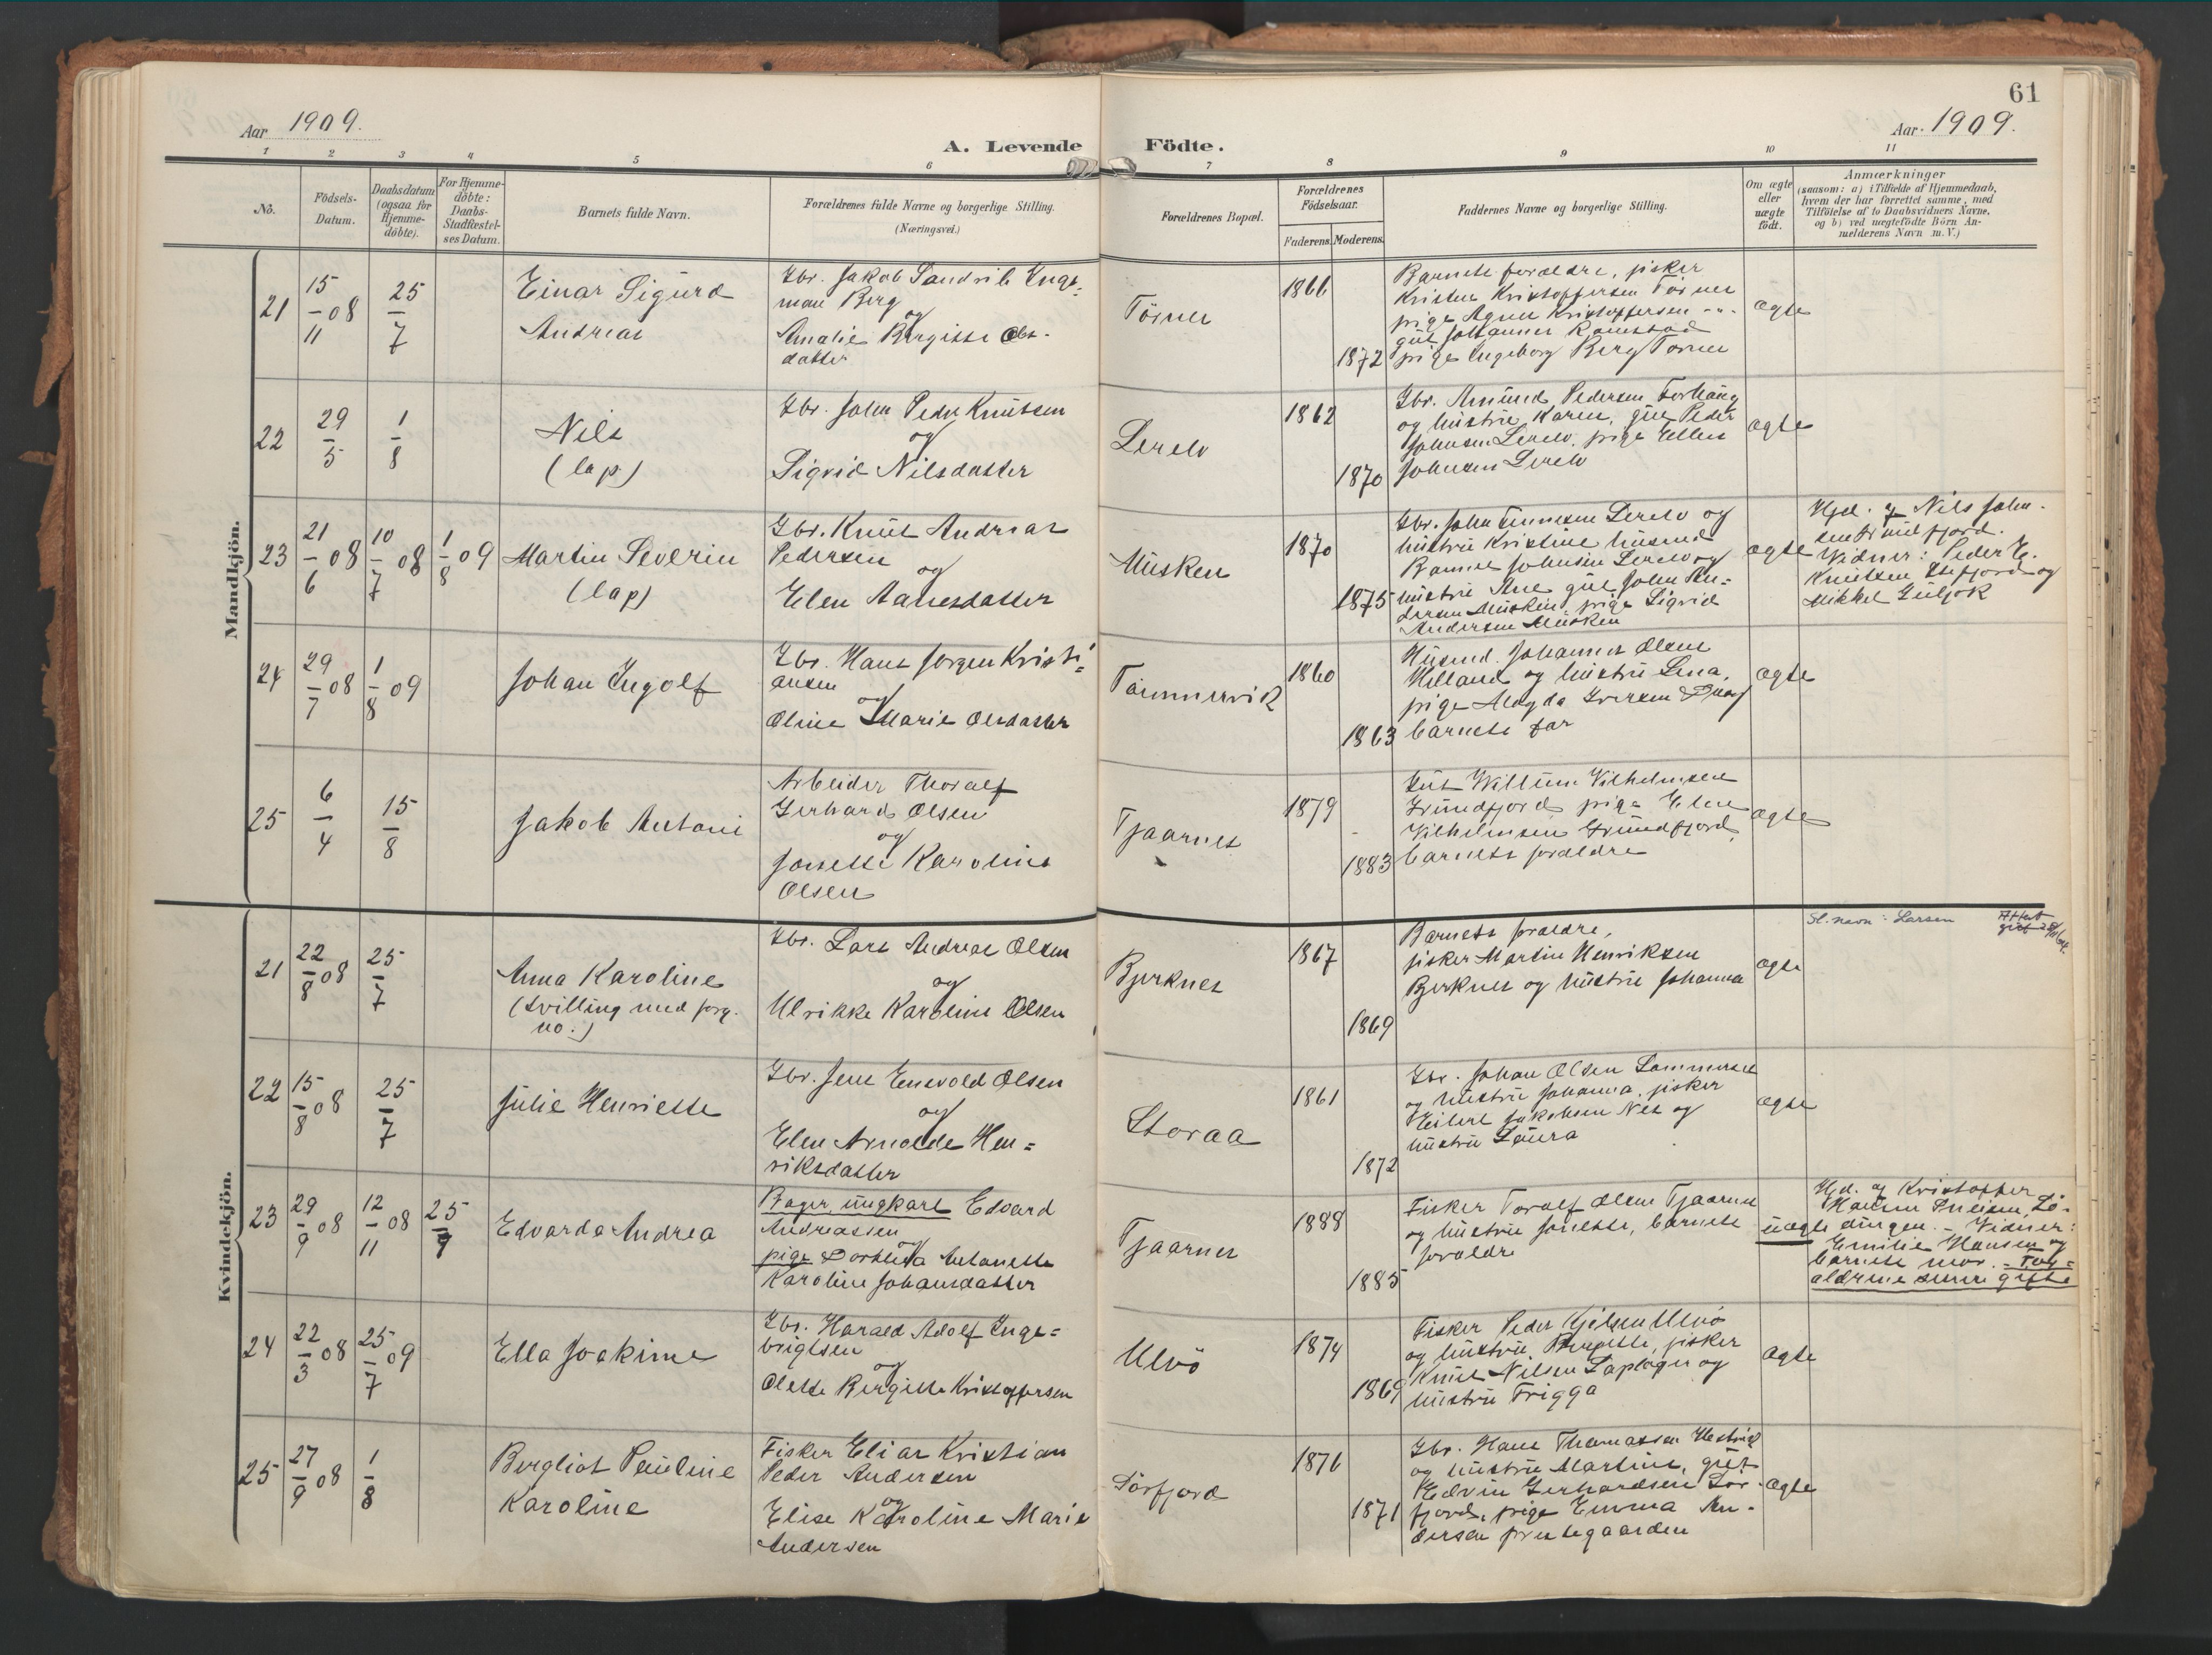 Aar 1909.
A. Levende
1 2 3 4 5 6
No.
Födsels-
Datum.
Daabsdatum
(ogsaa for
Hjemme-
döbte).
For Hjemme-
döbte:
Daabs-
Stadfæstel-
ses Datum.
Barnets fulde Navn.
Forældrenes fulde Navne og borgerlige Stilling.
(Næringsvei.)
Mandkjön.
21
15/11 08
25/7
Einar Sigurd
Andreas
Gbr. Jakob Sandvik Inge-
man Berg
og
Amalie Bergitte Ols-
datter
22
29/5
1/8
Nils
(lap)
Gbr. John Peder Knutsen
og
Sigrid Nilsdatter
23
21/6 08
10/7 08
1/8 09
Martin Severin
(lap)
Gbr. Knut Andreas
Pedersen
og
Elen Aanesdatter
24
29/7 08
1/8 09
Johan Ingolf
Gbr. Hans Jorgen Kristi-
ansen
og
Oline Marie Olsdatter
25
6/4
15/8
Jakob Antoni
Arbeider Thoralf
Gerhard Olsen
og
Jonette Karoline
Olsen
Kvindekjön.
21
22/8 08
25/7
Anna Karoline
(tvilling med forg.
no.)
Gbr. Lars Andreas Olsen
og
Ulrikke Karoline Olsen
22
15/8 08
25/7
Julie Henriette
Gbr. Jens Enevold Olsen
og
Elen Arnolde Hen-
riksdatter
23
29/9 08
12/11 08
25/7
Edvarda Andrea
Bager, ungkarl Edvard
Andreassen
og
pige Dorthea Antonette
Karoline Johansdatter
24
22/3 08
25/7 09
Ella Joakime
Gbr. Harald Adolf Inge-
brigtsen
og
Olette Bergitte Kristoffersen
25
27/9 08
1/8
Bergliot Pauline
Karoline
Fisker Eliar Kristian
Peder Andersen
og
Elise Karoline Marie
Andersen
61
Födte.
Aar 1909.
7 8 9 10 11
Forældrenes Bopæl.
Forældrenes
Födselsaar.
Faderens. Moderens.
Faddernes Navne og borgerlige Stilling.
Om ægte
eller
uægte
födt.
Anmærkninger
(saasom: a) i Tilfælde af Hjemmedaab,
hvem der har forrettet samme, med
Tilföielse af to Daabsvidners Navne,
og b) ved uægtefödte Börn An-
melderens Navn m. V.)
Törnes
1866
1872
Barnets forældre, fisker
Kristen Kristoffersen Törnes
pige Agnes Kristoffersen -"-
gut Johannes Ramstad
pige Ingeborg Berg Tornes
ægte
Lerelv
1862
1870
Gbr. Amund Pedersen
og hustru Karen, gut Peder
Johnsen Lerelv, pige Ellen
Johnsen Lerelv
ægte
Musken
1870
1875
Gbr. John Lerelv og
hustru Kristine husmd
Johnsen Lerelv og
hustru Ane gut John An-
dersen Musken, pige Sigrid
Andersen Musken
ægte
Hjd. af Nils John-
sen Grundfjord.
Vidner: Peder E.
Knutsen og
Mikkel
Tömmervik
1860
1863
Husmd. Johannes Olsen
Helland og hustru Lina,
pige Magda Iversen Drag
barnets far
ægte
Tjaarnes
1879
1883
Gut Willum Vilhelmsen
Grundfjord, pige Elen
Vilhelmsen Grundfjord,
barnets forældre
ægte
Bjerknes
1867
1869
Barnets forældre,
fisker Martin Henriksen
Bjerknes og hustru Johanna
ægte
Sl. navn: Larsen
Attest
Storaa
1861
1872
Gbr. Johan Olsen Sommerset
og hustru Johanna, fisker
Eilert Jakobsen Nes og
hustru Laura
ægte
Tjaarnes
1888
1885
Fisker Toralf Olsen Tjaarnes
og hustru Jonette, barnets
forældre
uægte
Hjd. af Kristoffer
Hansen Lö-
dingen. – Vidner:
Emilie Hansen og
barnets mor. – For-
ældrene senere gifte
Ulvö
1874
1869
Fisker Peder Ulvö
og hustru Bergitte, fisker
Knut Nilsen og
hustru Frigga
ægte
Sörfjord
1876
1871
Gbr. Hans Thomassen Hestvik
og hustru Martine, gut
Edvin Gerhardsen Sör-
fjord, pige Emma An-
dersen prestegaarden
ægte